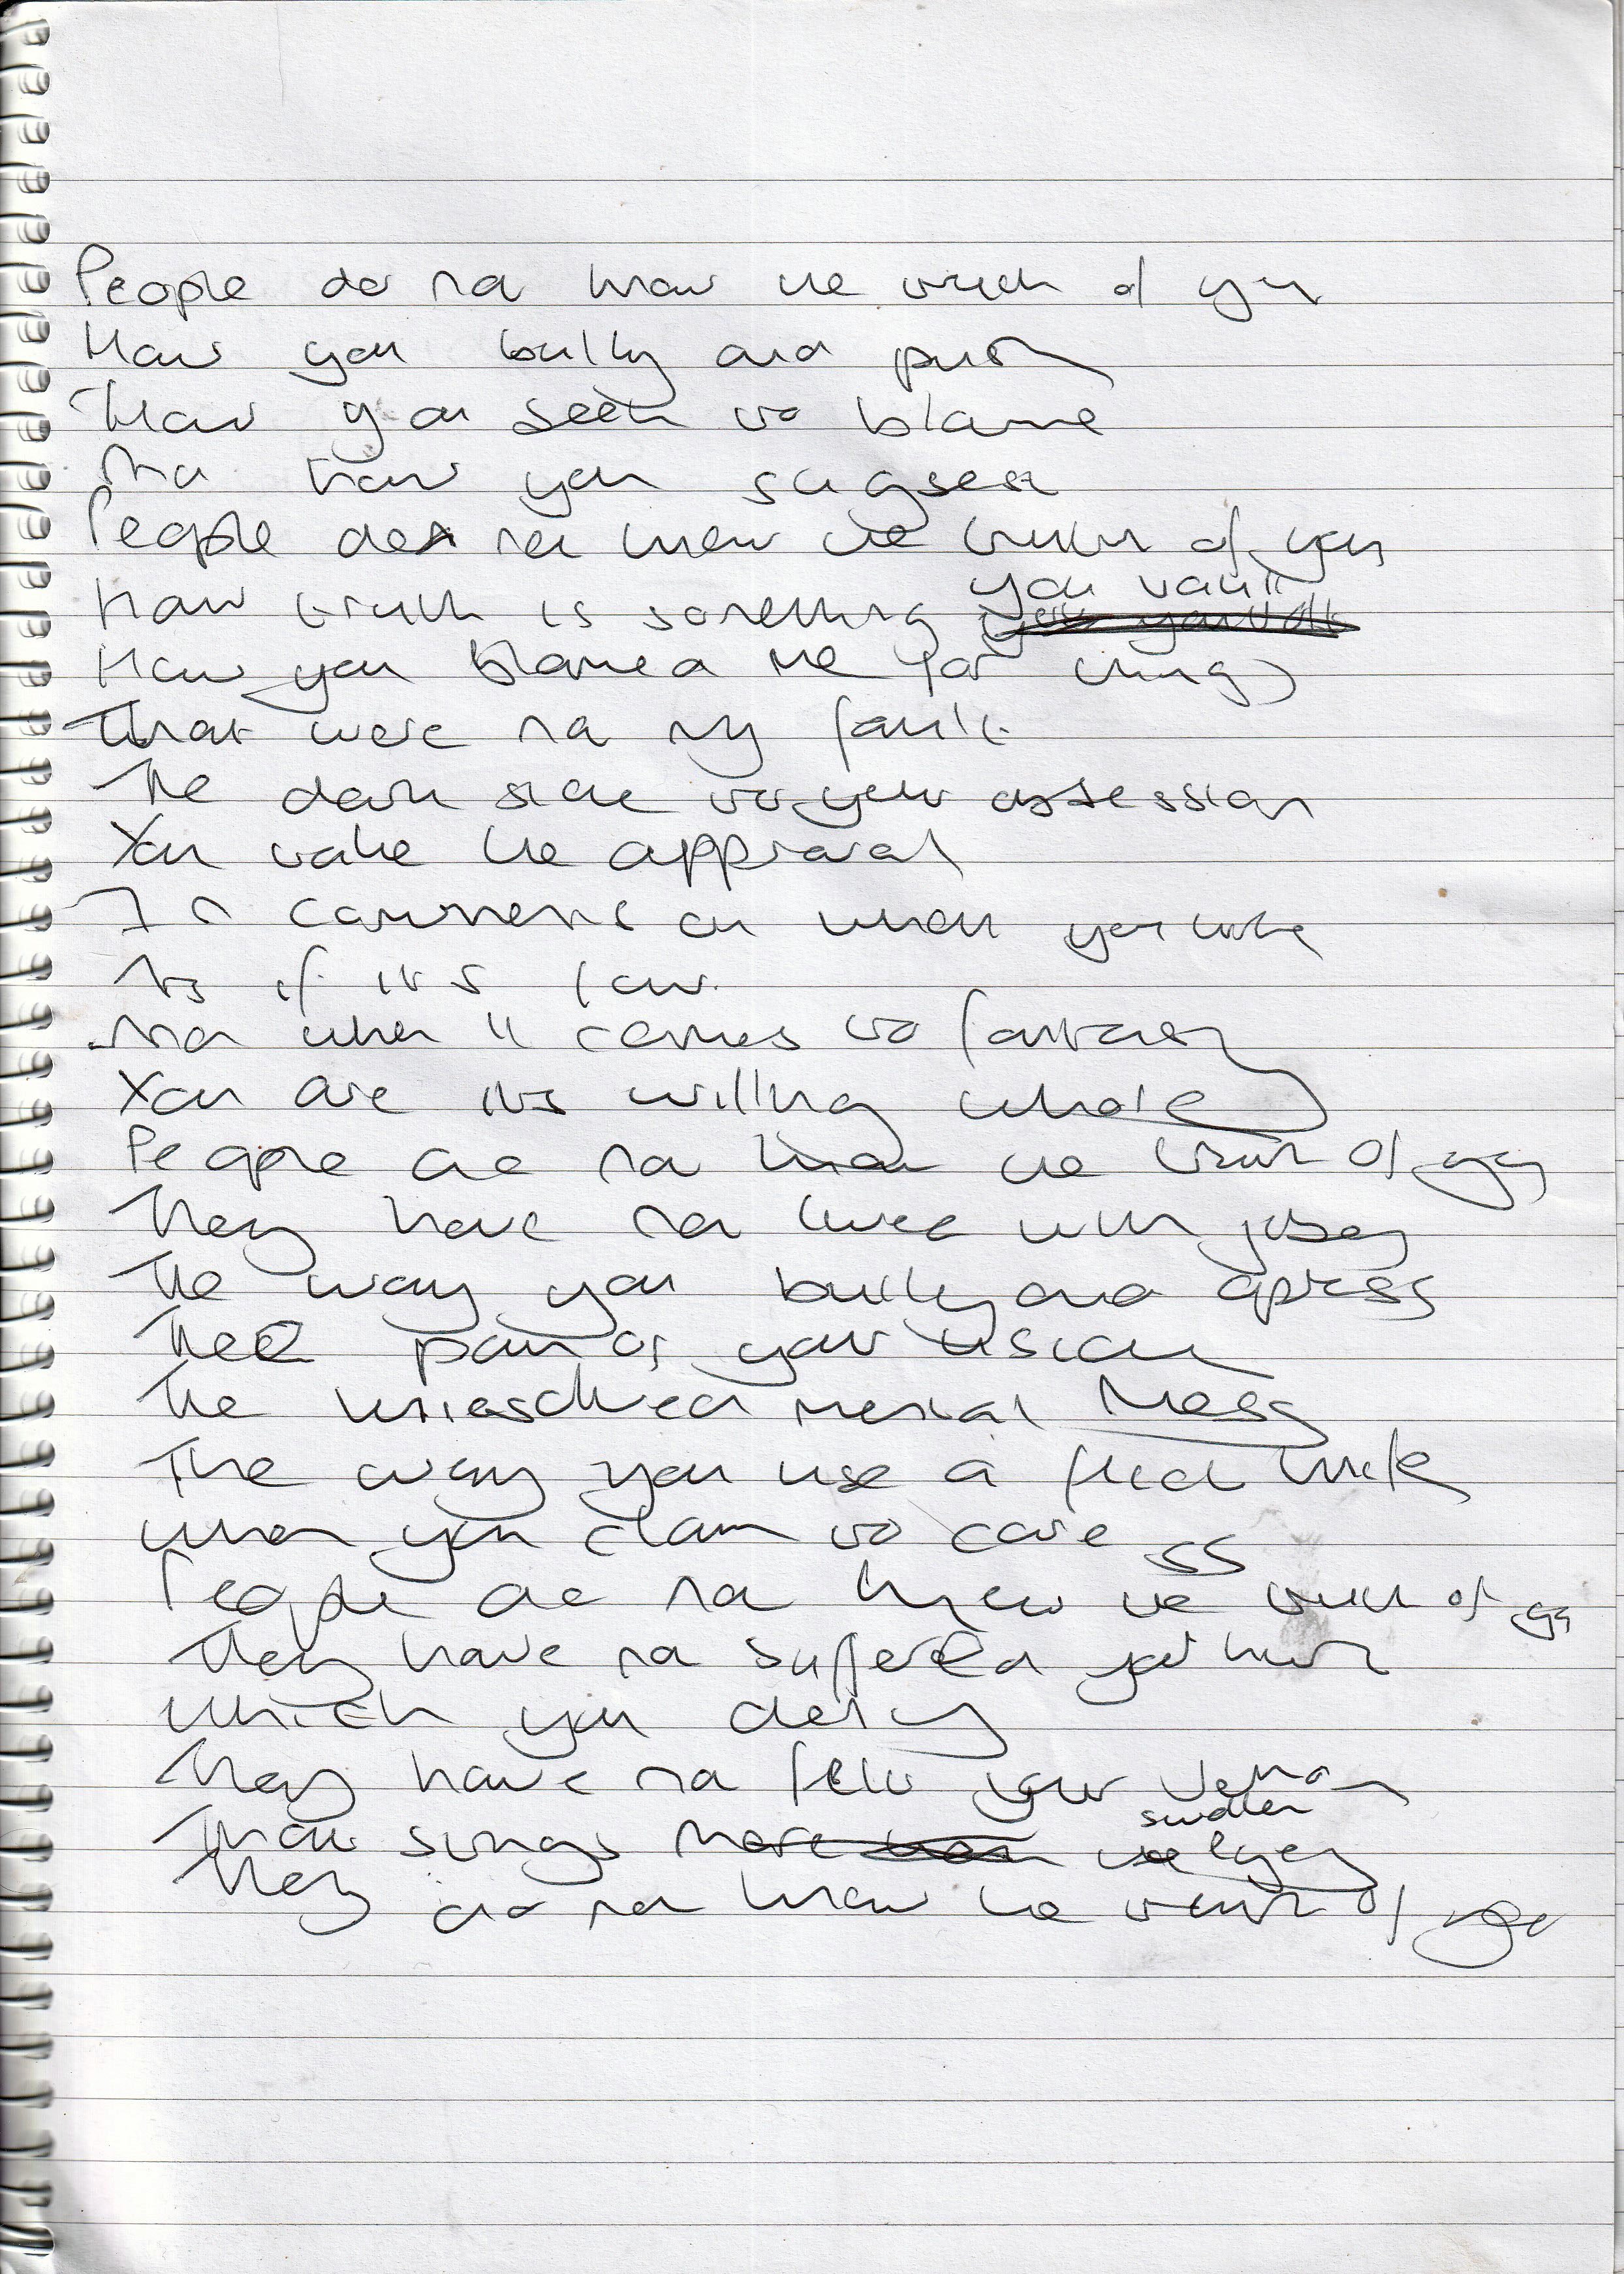 People do not know the truth of you
How you bully and push
How you seek to blame
And how you suggest
People do not know the truth of you
How truth is something you vault
How you blamed me for things
That were not my fault
The dark side to your obsession
You take the approval
In comments on what you write
As if its law
And when it comes to fantasy
You are its willing whore
People do not know the truth of you
They have not lived with
The way you bully and opress
The pain of your
The unresolved mental mess
The way you use a flick knife
When you claim to caress
People do not know the truth of you
They have not suffered your hurt
Which you deny
They have not felt your venom
That stings more swollen eye
They do not know the truth of you